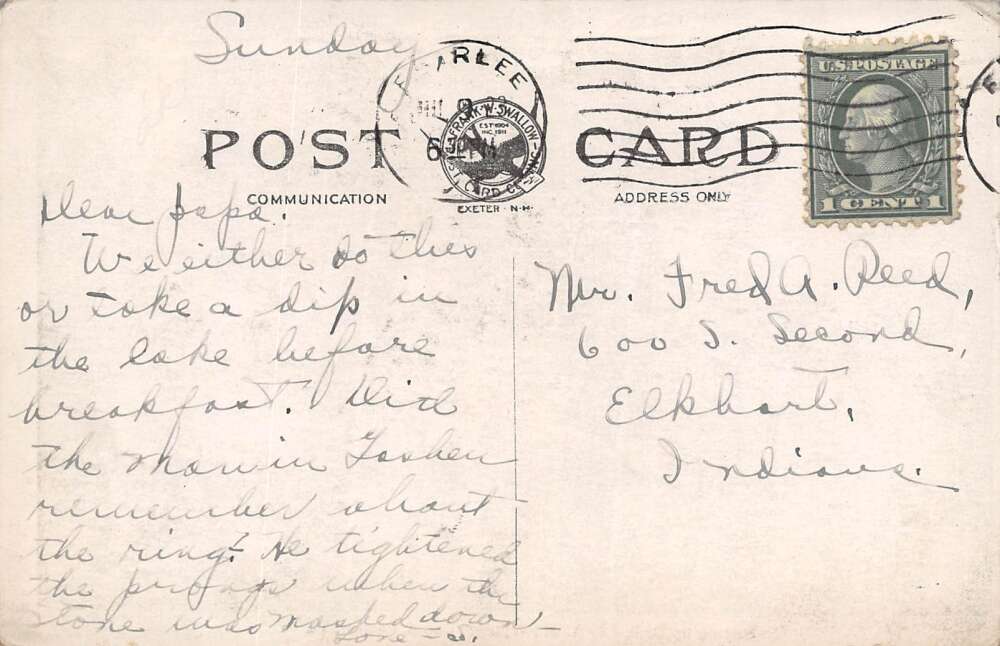 Sunday
FAIRLEE
6 PM
FRANK W. SWALLOW
EST 1904
INC. 1911
POST CARD CO. INC.
EXETER - N-H-
POST CARD
COMMUNICATION
ADDRESS ONLY
U.S. POSTAGE
1 CENT 1
Dear Papa.
We either do this
or take a dip in
the lake before
breakfast. Did
the man in Goshen
remember about
the ring? He tightened
the prongs when the
stone was down
Love -
Mr. Fred A. Reed,
600 S. Second,
Elkhart,
Indiana.